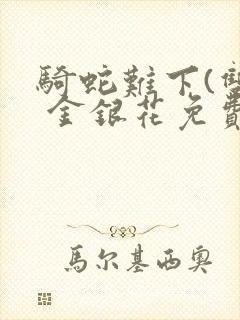 騎蛇難下(雙
金銀花免費
馬尔基西奥